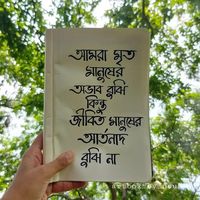 আমরা মৃত
মানুষের
অভাব বুঝি
কিন্তু
জীবিত মানুষের
আর্তনাদ
বুঝি না